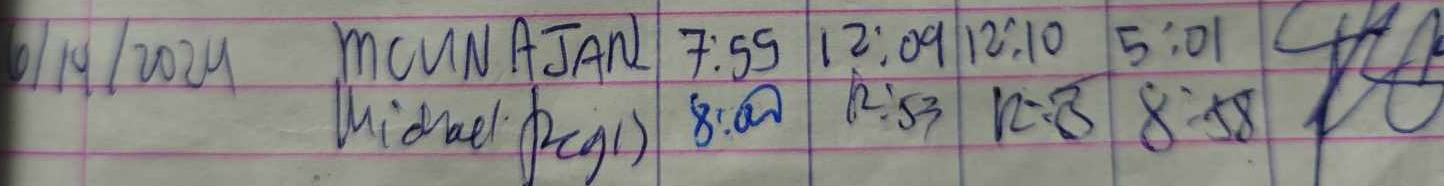 6/14/2024 MCUN AJAN 7:55 12:09 12:10 5:01
Michael 8:00 12:53 8:58